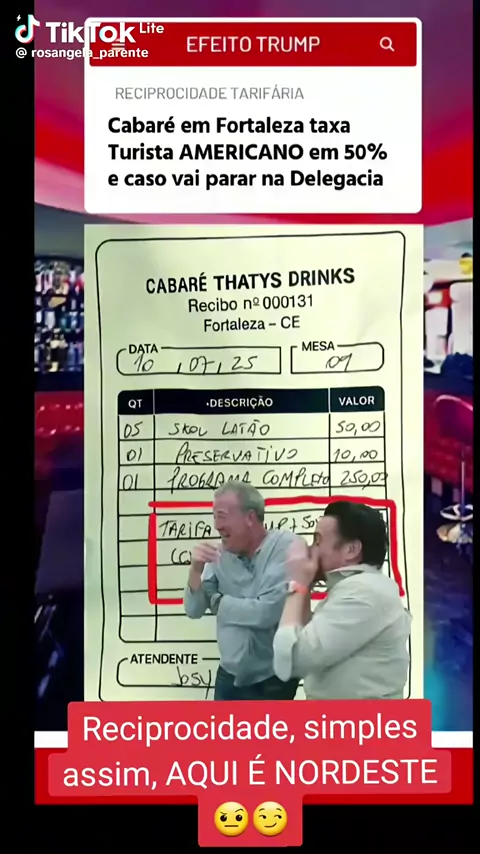 TikTok Lite
@ rosangela_parente
EFEITO TRUMP
RECIPROCIDADE TARIFÁRIA
Cabaré em Fortaleza taxa
Turista AMERICANO em 50%
e caso vai parar na Delegacia
CABARÉ THATYS DRINKS
Recibo nº 000131
Fortaleza – CE
DATA
10 , 07, 25
MESA
09
QT •DESCRIÇÃO VALOR
05 SKOL LATÃO 50,00
01 PRESERVATIVO 10,00
01 PROGRAMA COMPLETO 250,00
TARIFA
ATENDENTE
Reciprocidade, simples
assim, AQUI É NORDESTE
🤨😏